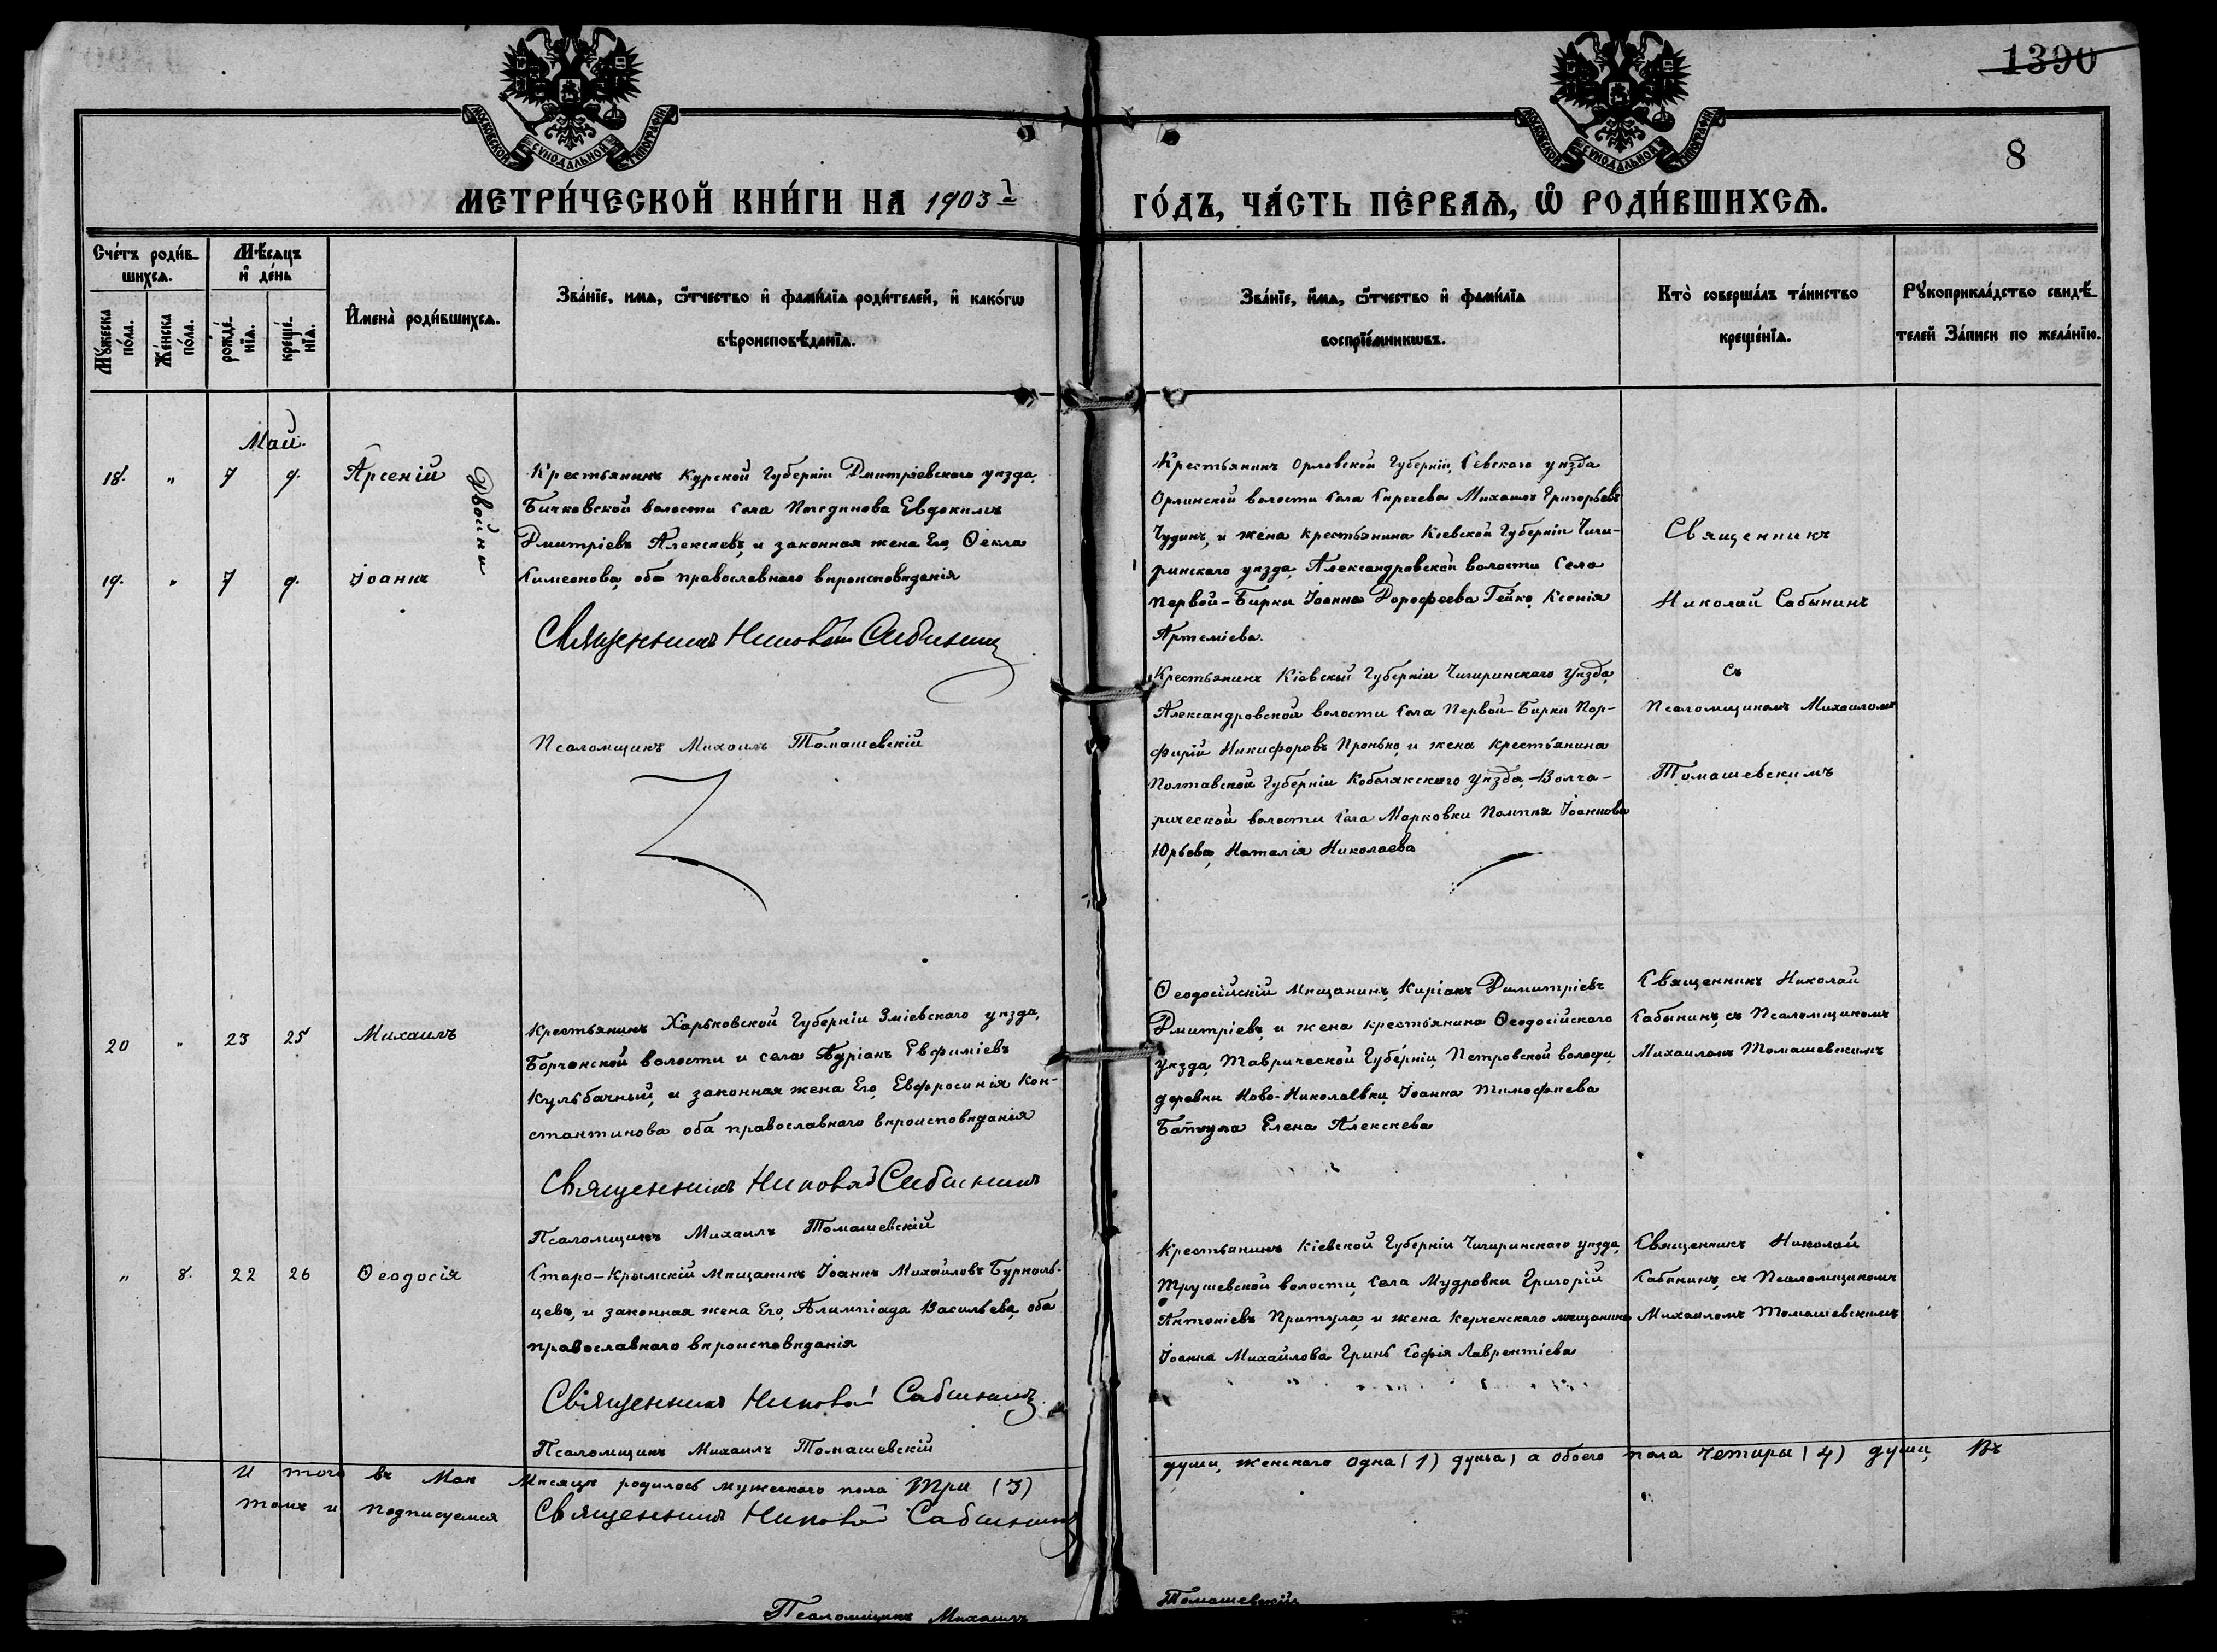 1390
МОСКОВСКОЙ СѴНОДАЛЬНОЙ ТИПОГРАФІИ
МОСКОВСКОЙ СѴНОДАЛЬНОЙ ТИПОГРАФІИ
8
МЕТРИ́ЧЕСКОЙ КНИ́ГИ НА 1903й
ГО́ДЪ, ЧА́СТЬ ПЕ́РВАѦ, Ѡ҆ РОДИ́ВШИХСѦ.
Сче́тъ роди́в-
шихсѧ.
Мѣ́сѧцъ
и҆ де́нь
Мꙋ́жеска
по́ла.
Же́нска
по́ла.
рожде́-
нїѧ.
креще́-
нїѧ.
И҆мена̀ роди́вшихсѧ.
Зва́нїе, имѧ, ѻ҆́тчество и҆ фами́лїѧ роди́телей, и҆ како́гѡ
вѣроисповѣ́данїѧ.
Зва́нїе, и҆́мѧ, ѻ҆́тчество и҆ фами́лїѧ
воспрїе́мникѡвъ.
Кто̀ соверша́лъ та́инство
креще́нїѧ.
Рꙋкоприкла́дство свидѣ́-
телей За́писи по жела́нїю.
Май.
18. " 7 9. Арсеній
Двойни
Крестьянинъ Курской Губерніи Дмитріевского уѣзда,
Бичковской волости села Погодинова Евдокимъ
Дмитріевъ Алексѣевъ, и законная жена Его, Ѳекла
19. " 7 9. Іоаннъ
Симеонова, оба православнаго вѣроисповѣданія
Священникъ Николай Сабынинъ
Псаломщикъ Михаилъ Томашевскій
Крестьянинъ Орловской Губерніи, Севскаго уѣзда
Орлинской волости села Михаилъ Григорьевъ
Чудинъ, и жена крестьянина Кіевской Губерніи Чиги-
ринскаго уѣзда, Александровской волости Села
первой-Бирки Іоанна Дорофеева Гейко, Ксенія
Артеміева.
Крестьянинъ Кіевской Губерніи Чигиринскаго Уѣзда,
Александровской волости Села Первой-Бирки Пор-
фирій Никифоровъ Пронько, и жена крестьянина
Полтавской Губерніи Кобелякскаго Уѣзда, Волча-
рической волости Села Марковки Іоаннова
Юрьева, Наталія Николаева
Священникъ
Николай Сабынинъ
съ
Псаломщикомъ Михаиломъ
Томашевскимъ
20 " 23 25 Михаилъ
Крестьянинъ Харьковской Губерніи Зміевскаго уѣзда,
Борчанской волости и села Адріанъ Евфиміевъ
Кульбачный, и законная жена Его, Евфросинія Кон-
стантинова оба православнаго вѣроисповѣданія
Священникъ Николай Сабынинъ
Псаломщикъ Михаилъ Томашевскій
Ѳеодосійскій Мѣщанинъ, Киріакъ Димитріевъ
Дмитріевъ, и жена крестьянина Ѳеодосійскаго
Уѣзда, Таврической Губерніи, Петровской волости,
деревни Ново-Николаевки, Іоанна Тимофѣева
Елена Алексѣева
Священникъ Николай
Сабынинъ, съ Псаломщикомъ
Михаиломъ Томашевскимъ
" 8. 22 26 Ѳеодосія
Старо-Крымскій Мѣщанинъ Іоаннъ Михайловъ Бурноль-
цевъ, и законная жена Его, Алимпіада Васильева, оба
православнаго вѣроисповѣданія
Священникъ Николай Сабынинъ
Псаломщикъ Михаилъ Томашевскій
Крестьянинъ Кіевской Губерніи Чигиринскаго уѣзда,
Трушевской волости, Села Мудровки Григорій
Антоніевъ Притула, и жена Керченскаго мѣщанина
Іоанна Михайлова Гринь Софія Лаврентіева
Священникъ Николай
Сабынинъ, съ Псаломщикомъ
Михаиломъ Томашевскимъ
И того въ Маѣ Мѣсяцѣ родилось мужескаго пола Три (3)
души, женскаго одна (1) душа, а обоего пола четыри (4) души, Въ
томъ и подписуемся Священникъ Николай Сабынинъ
Псаломщикъ Михаилъ Томашевскій